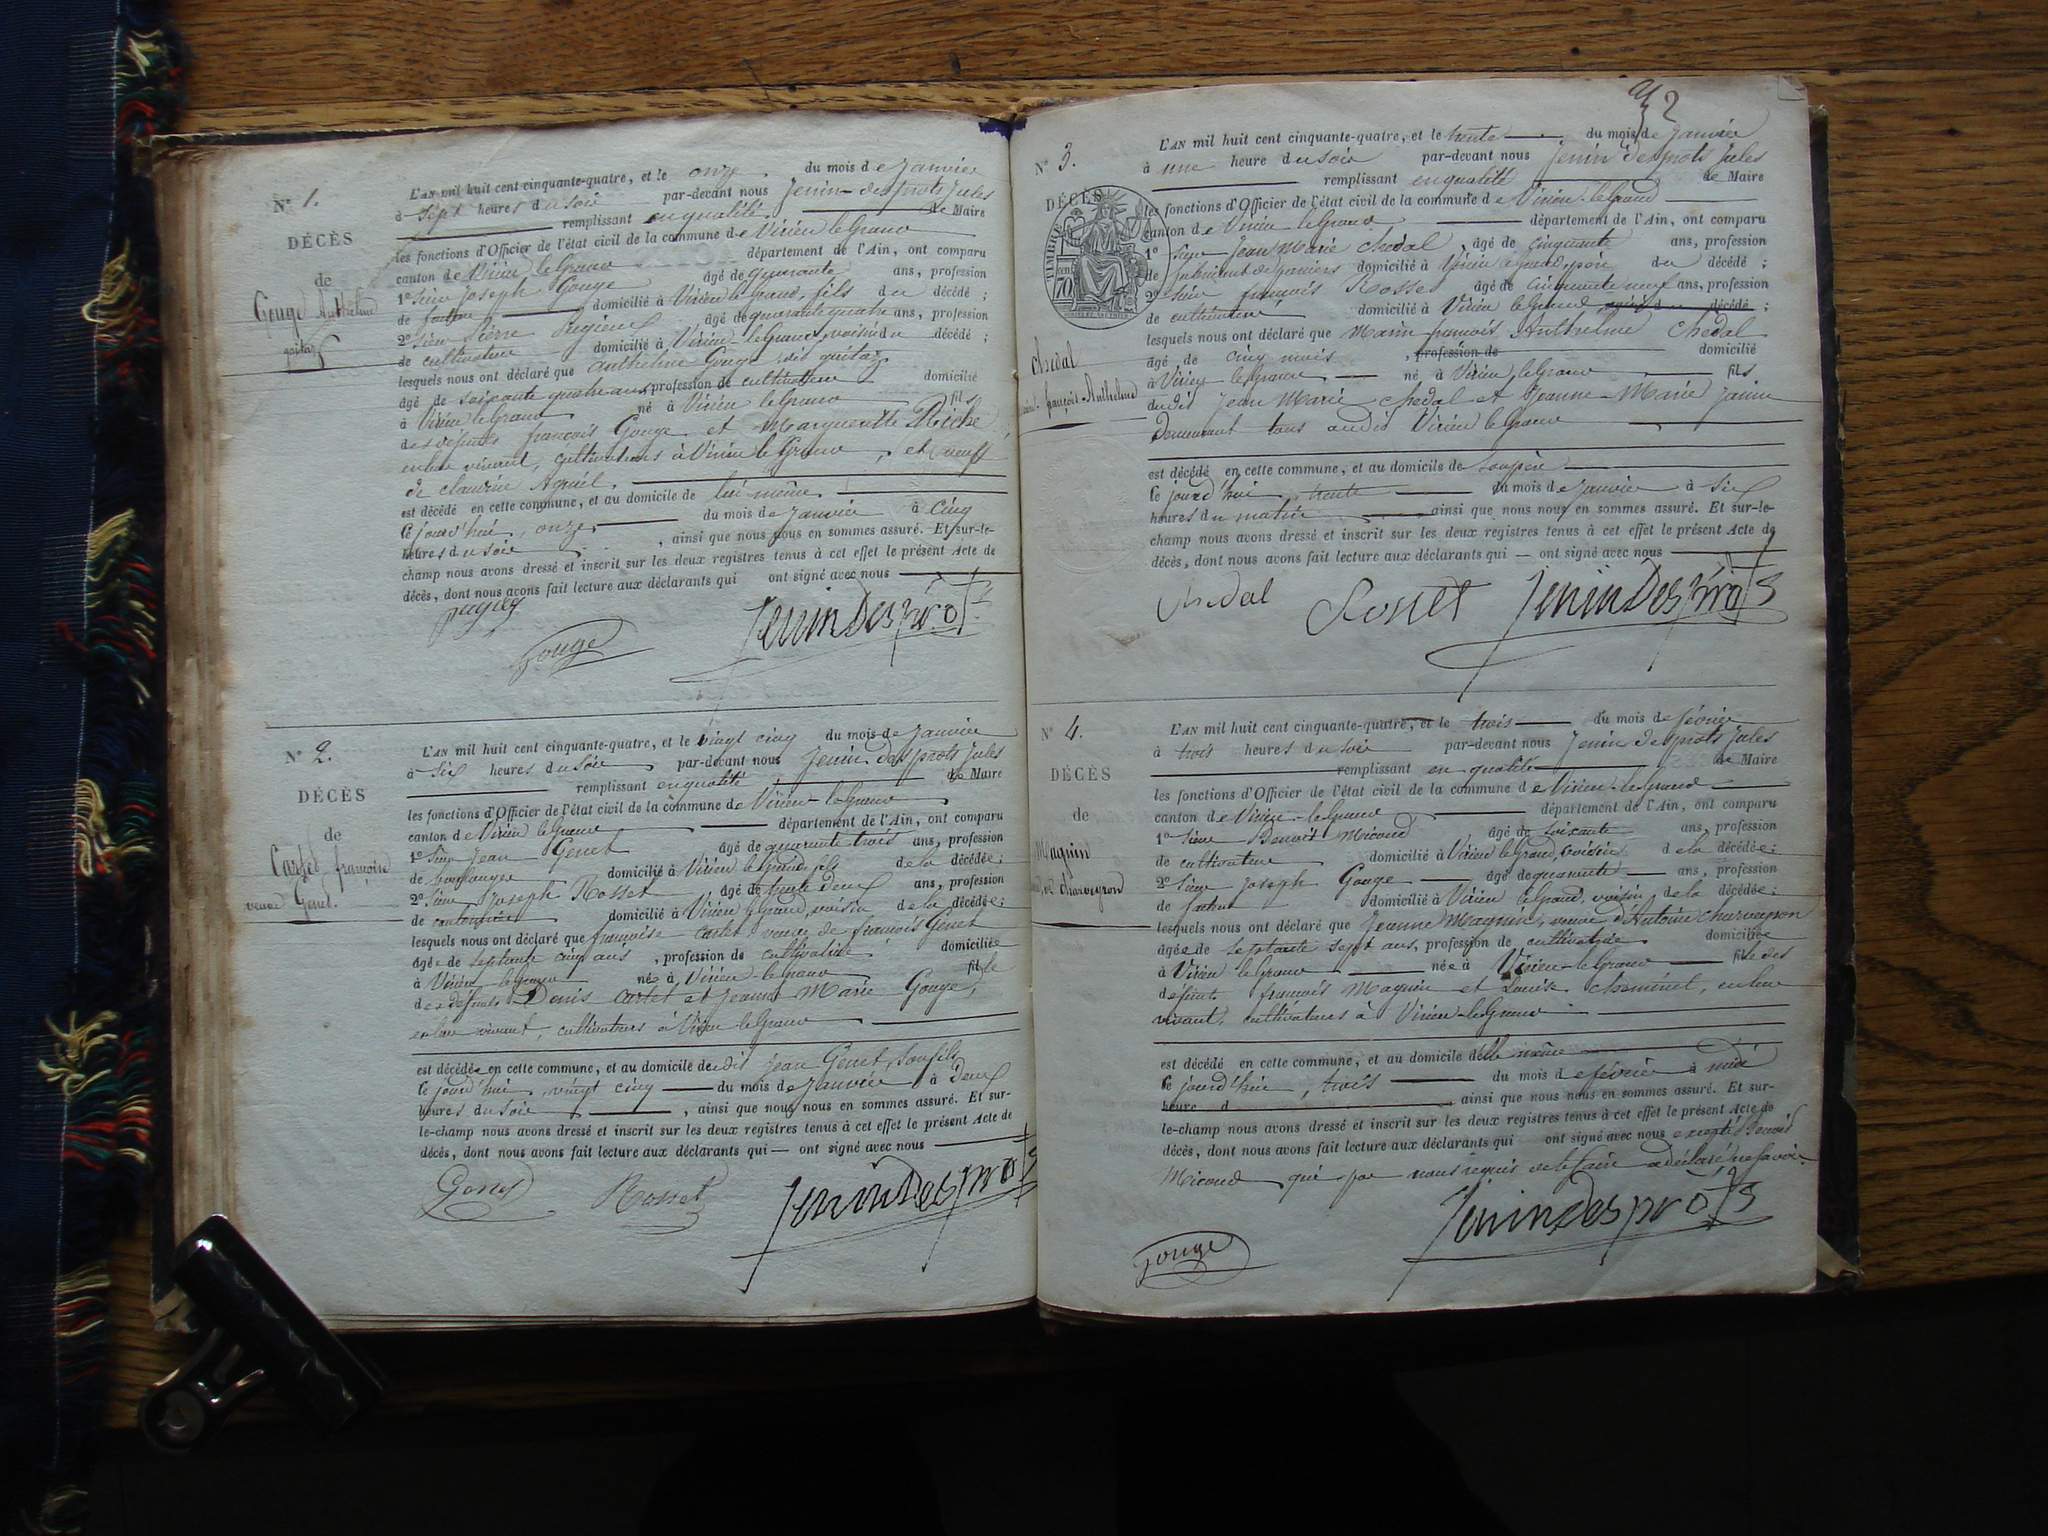 N° 1.
DÉCÈS
de
Gouge Anthelme
guitaz
L'AN mil huit cent cinquante-quatre, et le onze du mois de Janvier
à sept heures du soir par-devant nous Jenin-desprots Jules
remplissant en qualité de Maire
les fonctions d'Officier de l'état civil de la commune de Virieu le Grand
canton de Virieu le Grand département de l'Ain, ont comparu
1° Sieur Joseph Gouge âgé de quarante ans, profession
de domicilié à Virieu le Grand, fils du décédé ;
2° Sieur Pierre âgé de quarante quatre ans, profession
de cultivateur domicilié à Virieu-le Grand, voisin du décédé ;
lesquels nous ont déclaré que anthelme Gouge dit guitaz
âgé de soixante quatre ans, profession de cultivateur domicilié
à Virieu le Grand né à Virieu le Grand fils
des défunts françois Gouge et Marguerite Riche
en leur vivant, cultivateurs à Virieu le Grand, et veuf
de claudine
est décédé en cette commune, et au domicile de lui même
le jourd'hui, onze, du mois de Janvier à cinq
heures du soir, ainsi que nous nous en sommes assuré. Et sur-le-
champ nous avons dressé et inscrit sur les deux registres tenus à cet effet le présent Acte de
décès, dont nous avons fait lecture aux déclarants qui ont signé avec nous
Gouge Jenin Desprots
N° 2.
DÉCÈS
de
Cartet françoise
veuve Genet.
L'AN mil huit cent cinquante-quatre, et le vingt cinq du mois de Janvier
à six heures du soir par-devant nous Jenin desprots Jules
remplissant en qualité de Maire
les fonctions d'Officier de l'état civil de la commune de Virieu-le Grand
canton de Virieu le Grand département de l'Ain, ont comparu
1° Sieur Jean Genet âgé de quarante trois ans, profession
de boulanger domicilié à Virieu le Grand, fils de la décédée ;
2° Sieur Joseph Rosset âgé de trente deux ans, profession
de cantonnier domicilié à Virieu le Grand, voisin de la décédée ;
lesquels nous ont déclaré que françoise cartet, veuve de françois Genet
âgée de septante cinq ans, profession de cultivatrice domiciliée
à Virieu le Grand née à Virieu-le Grand fille
des défunts Denis cartet et Jeanne Marie Gouge,
en leur vivant, cultivateurs à Virieu le Grand
est décédée en cette commune, et au domicile dudit Jean Genet, son fils
le jourd'hui vingt cinq du mois de Janvier à deux
heures du soir, ainsi que nous nous en sommes assuré. Et sur-
le-champ nous avons dressé et inscrit sur les deux registres tenus à cet effet le présent Acte de
décès, dont nous avons fait lecture aux déclarants qui — ont signé avec nous
Genet Rosset Jenin Desprots
N° 3.
DÉCÈS
TIMBRE
70
Chedal
françois-Anthelme
L'AN mil huit cent cinquante-quatre, et le trente du mois de Janvier
à une heure du soir par-devant nous Jenin desprots Jules
remplissant en qualité de Maire
les fonctions d'Officier de l'état civil de la commune de Virieu-le Grand
canton de Virieu-le Grand département de l'Ain, ont comparu
1° Sieur Jean Marie Chedal, âgé de cinquante ans, profession
de fabricant de domicilié à Virieu le Grand, père du décédé ;
2° Sieur françois Rosset âgé de cinquante neuf ans, profession
de cultivateur domicilié à Virieu le Grand voisin du décédé ;
lesquels nous ont déclaré que Marin françois Anthelme Chedal
âgé de cinq mois, profession de domicilié
à Virieu le Grand né à Virieu le Grand fils
dudit Jean Marie Chedal et Jeanne-Marie Janin
Demeurant tous audit Virieu le Grand
est décédé en cette commune, et au domicile de son père
le jourd'hui trente du mois de Janvier à six
heures du matin ainsi que nous nous en sommes assuré. Et sur-le-
champ nous avons dressé et inscrit sur les deux registres tenus à cet effet le présent Acte de
décès, dont nous avons fait lecture aux déclarants qui — ont signé avec nous
Chedal Rosset Jenin Desprots
N° 4.
DÉCÈS
de
Maguin
Charveyron
L'AN mil huit cent cinquante-quatre, et le trois du mois de février
à trois heures du soir par-devant nous Jenin desprots Jules
remplissant en qualité de Maire
les fonctions d'Officier de l'état civil de la commune de Virieu-le Grand
canton de Virieu-le Grand département de l'Ain, ont comparu
1° Sieur Benoit Micoud, âgé de soixante ans, profession
de cultivateur domicilié à Virieu le Grand, voisin de la décédée ;
2° Sieur Joseph Gouge âgé de quarante ans, profession
de domicilié à Virieu le Grand, voisin de la décédée ;
lesquels nous ont déclaré que Jeanne Maguin, veuve d'Antoine Charveyron
âgée de septante sept ans, profession de cultivatrice domiciliée
à Virieu le Grand née à Virieu-le Grand fille des
défunts françois Maguin et Louise en leur
vivant, cultivateurs à Virieu-le Grand
est décédé en cette commune, et au domicile d'elle même
le jourd'hui, trois du mois de février à midi
heure d ainsi que nous nous en sommes assuré. Et sur-
le-champ nous avons dressé et inscrit sur les deux registres tenus à cet effet le présent Acte de
décès, dont nous avons fait lecture aux déclarants qui ont signé avec nous excepté Benoit
Micoud qui par nous requis de le faire a déclaré ne savoir.
Gouge Jenin Desprots